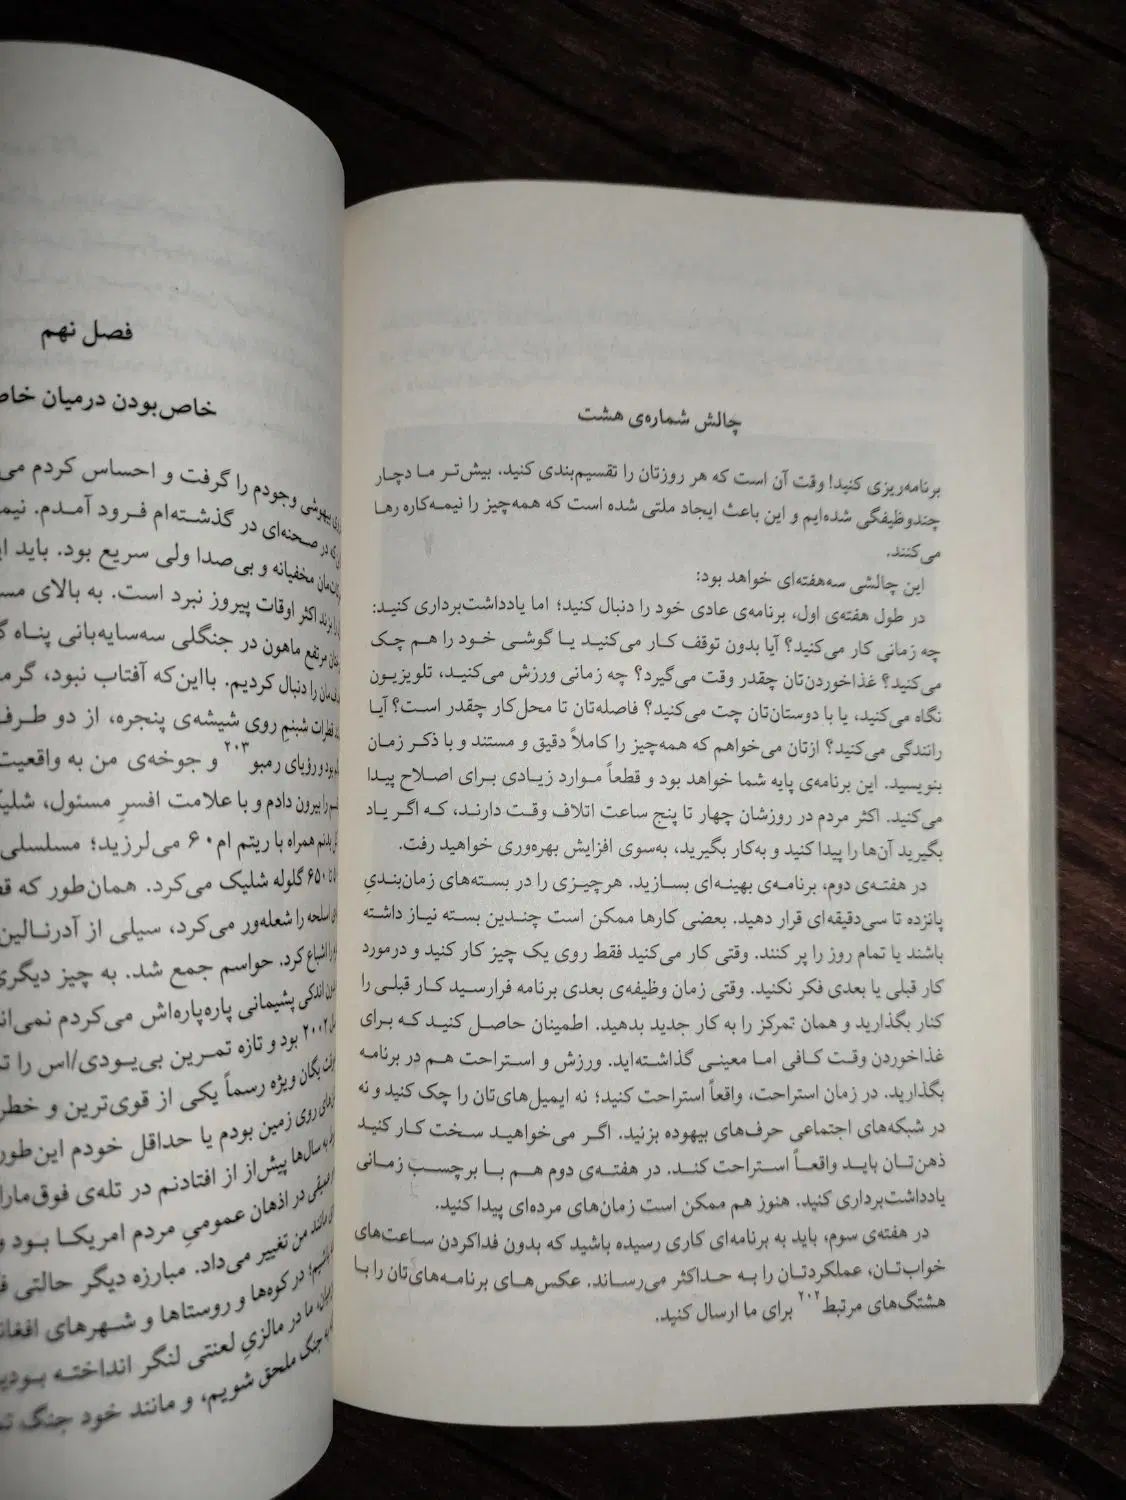 چالش شماره‌ی هشت
برنامه‌ریزی کنید! وقت آن است که هر روزتان را تقسیم‌بندی کنید. بیش‌تر ما دچار
چندوظیفگی شده‌ایم و این باعث ایجاد ملتی شده است که همه‌چیز را نیمه‌کاره رها
می‌کنند.
این چالشی سه‌هفته‌ای خواهد بود:
در طول هفته‌ی اول، برنامه‌ی عادی خود را دنبال کنید؛ اما یادداشت‌برداری کنید:
چه زمانی کار می‌کنید؟ آیا بدون توقف کار می‌کنید یا گوشی خود را هم چک
می‌کنید؟ غذاخوردن‌تان چقدر وقت می‌گیرد؟ چه زمانی ورزش می‌کنید، تلویزیون
نگاه می‌کنید، یا با دوستان‌تان چت می‌کنید؟ فاصله‌تان تا محل‌کار چقدر است؟ آیا
رانندگی می‌کنید؟ ازتان می‌خواهم که همه‌چیز را کاملاً دقیق و مستند و با ذکر زمان
بنویسید. این برنامه‌ی پایه شما خواهد بود و قطعاً موارد زیادی برای اصلاح پیدا
می‌کنید. اکثر مردم در روزشان چهار تا پنج ساعت اتلاف وقت دارند، که اگر یاد
بگیرید آن‌ها را پیدا کنید و به‌کار بگیرید، به‌سوی افزایش بهره‌وری خواهید رفت.
در هفته‌ی دوم، برنامه‌ی بهینه‌ای بسازید. هرچیزی را در بسته‌های زمان‌بندیِ
پانزده تا سی‌دقیقه‌ای قرار دهید. بعضی کارها ممکن است چندین بسته نیاز داشته
باشند یا تمام روز را پر کنند. وقتی کار می‌کنید فقط روی یک چیز کار کنید و درمورد
کار قبلی یا بعدی فکر نکنید. وقتی زمان وظیفه‌ی بعدی برنامه فرارسید کار قبلی را
کنار بگذارید و همان تمرکز را به کار جدید بدهید. اطمینان حاصل کنید که برای
غذاخوردن وقت کافی اما معینی گذاشته‌اید. ورزش و استراحت هم در برنامه
بگذارید. در زمان استراحت، واقعاً استراحت کنید؛ نه ایمیل‌های‌تان را چک کنید و نه
در شبکه‌های اجتماعی حرف‌های بیهوده بزنید. اگر می‌خواهید سخت کار کنید
ذهن‌تان باید واقعاً استراحت کند. در هفته‌ی دوم هم با برچسب زمانی
یادداشت‌برداری کنید. هنوز هم ممکن است زمان‌های مرده‌ای پیدا کنید.
در هفته‌ی سوم، باید به برنامه‌ای کاری رسیده باشید که بدون فداکردن ساعت‌های
خواب‌تان، عملکردتان را به حداکثر می‌رساند. عکس‌های برنامه‌های‌تان را با
هشتگ‌های مرتبط۲۰۲ برای ما ارسال کنید.
فصل نهم
خاص‌بودن درمیان
بیهوشی وجودم را گرفت و احساس کردم
که در صحنه‌ای در گذشته‌ام فرود آمدم.
مخفیانه و بی‌صدا ولی سریع بود. باید
برند اکثر اوقات پیروز نبرد است. به بالای
مرتفع ماهون در جنگلی سه‌سایه‌بانی پناه
را دنبال کردیم. بااین‌که آفتاب نبود،
قطرات شبنمِ روی شیشه‌ی پنجره، از دو
بود و رؤیای رمبو۲۰۳ و جوخه‌ی من به
را بیرون دادم و با علامت افسرِ مسئول،
بدنم همراه با ریتم ام۶۰ می‌لرزید؛ مسلسلی
تا ۶۵۰ گلوله شلیک می‌کرد. همان‌طور که
اسلحه را شعله‌ور می‌کرد، سیلی از
را اشباع کرد. حواسم جمع شد. به چیز
اندکی پشیمانی پاره‌پاره‌اش می‌کردم
۲۰۰۲ بود و تازه تمرین بی‌یودی/اس را
یگان ویژه رسماً یکی از قوی‌ترین و
روی زمین بودم یا حداقل خودم
به سال‌ها پیش‌از از افتادنم در تله‌ی
در اذهان عمومیِ مردم امریکا بود
مانند من تغییر می‌داد. مبارزه دیگر حالتی
باشیم؛ در کوه‌ها و روستاها و شهرهای
ما در مالزیِ لعنتی لنگر انداخته
به جنگ ملحق شویم، و مانند خود جنگ